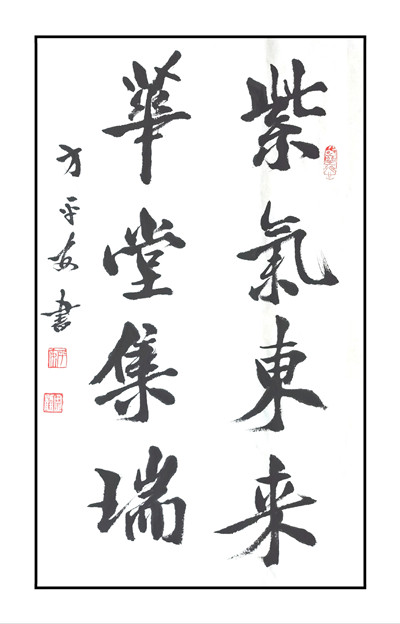 紫氣東来
華堂集瑞
方平安書